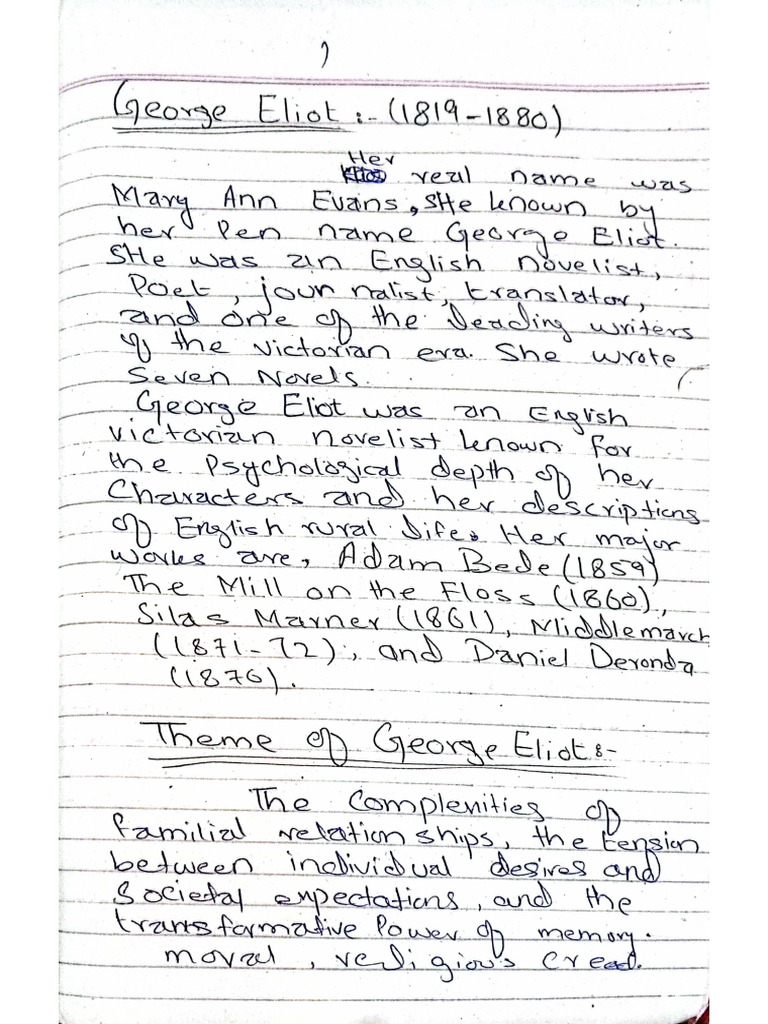 1
George Eliot :- (1819-1880)
Her
real name was
Mary Ann Evans, SHe known by
her Pen name George Eliot.
SHe was an English novelist,
Poet, journalist, translator,
and one of the leading writers
of the victorian era. She wrote
Seven Novels.
George Eliot was an English
victorian novelist known for
the Psychological depth of her
Characters and her descriptions
of English rural life. Her major
works are, Adam Bede (1859)
The Mill on the Floss (1860),
Silas Marner (1861), Middlemarch
(1871-72), and Daniel Deronda
(1876).
Theme of George Eliot :-
The Complexities of
familial relationships, the tension
between individual desires and
Societal expectations, and the
transformative Power of memory.
moral, religious creed.